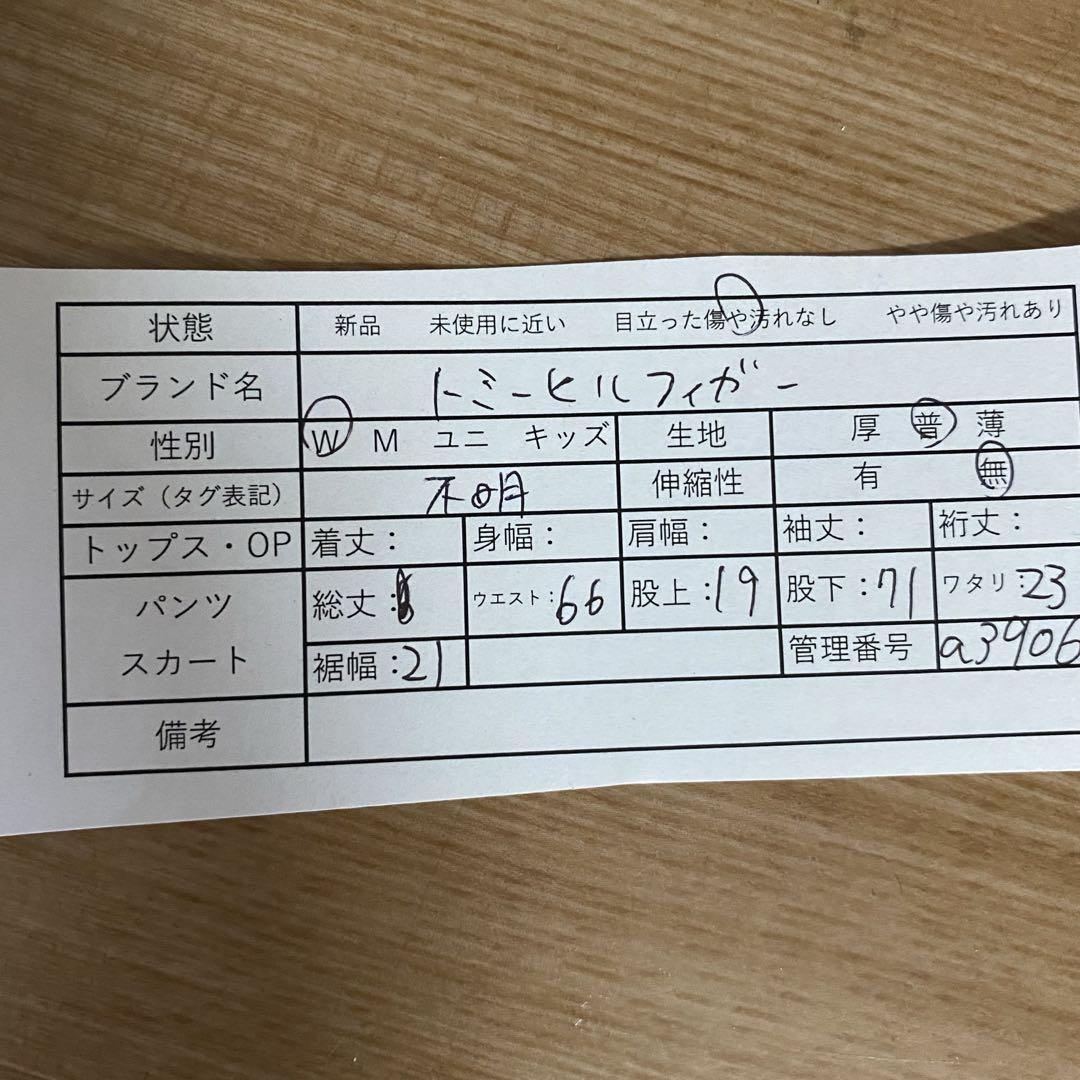 状態 新品 未使用に近い 目立った傷や汚れなし やや傷や汚れあり
ブランド名 トミーヒルフィガー
性別 W M ユニ キッズ 生地 厚 普 薄
サイズ（タグ表記） 不明 伸縮性 有 無
トップス・OP 着丈： 身幅： 肩幅： 袖丈： 裄丈：
パンツ 総丈： ウエスト：66 股上：19 股下：71 ワタリ：23
スカート 裾幅：21 管理番号 a3906
備考